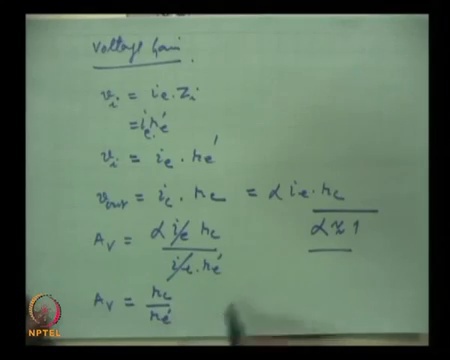 Voltage Gain
v_i = i_e . Z_i
= i_e r_e'
v_i = i_e . r_e'
v_out = i_c . r_c = α i_e . r_c
A_V = α i_e r_c / i_e . r_e'
α ≈ 1
A_V = r_c / r_e'
NPTEL